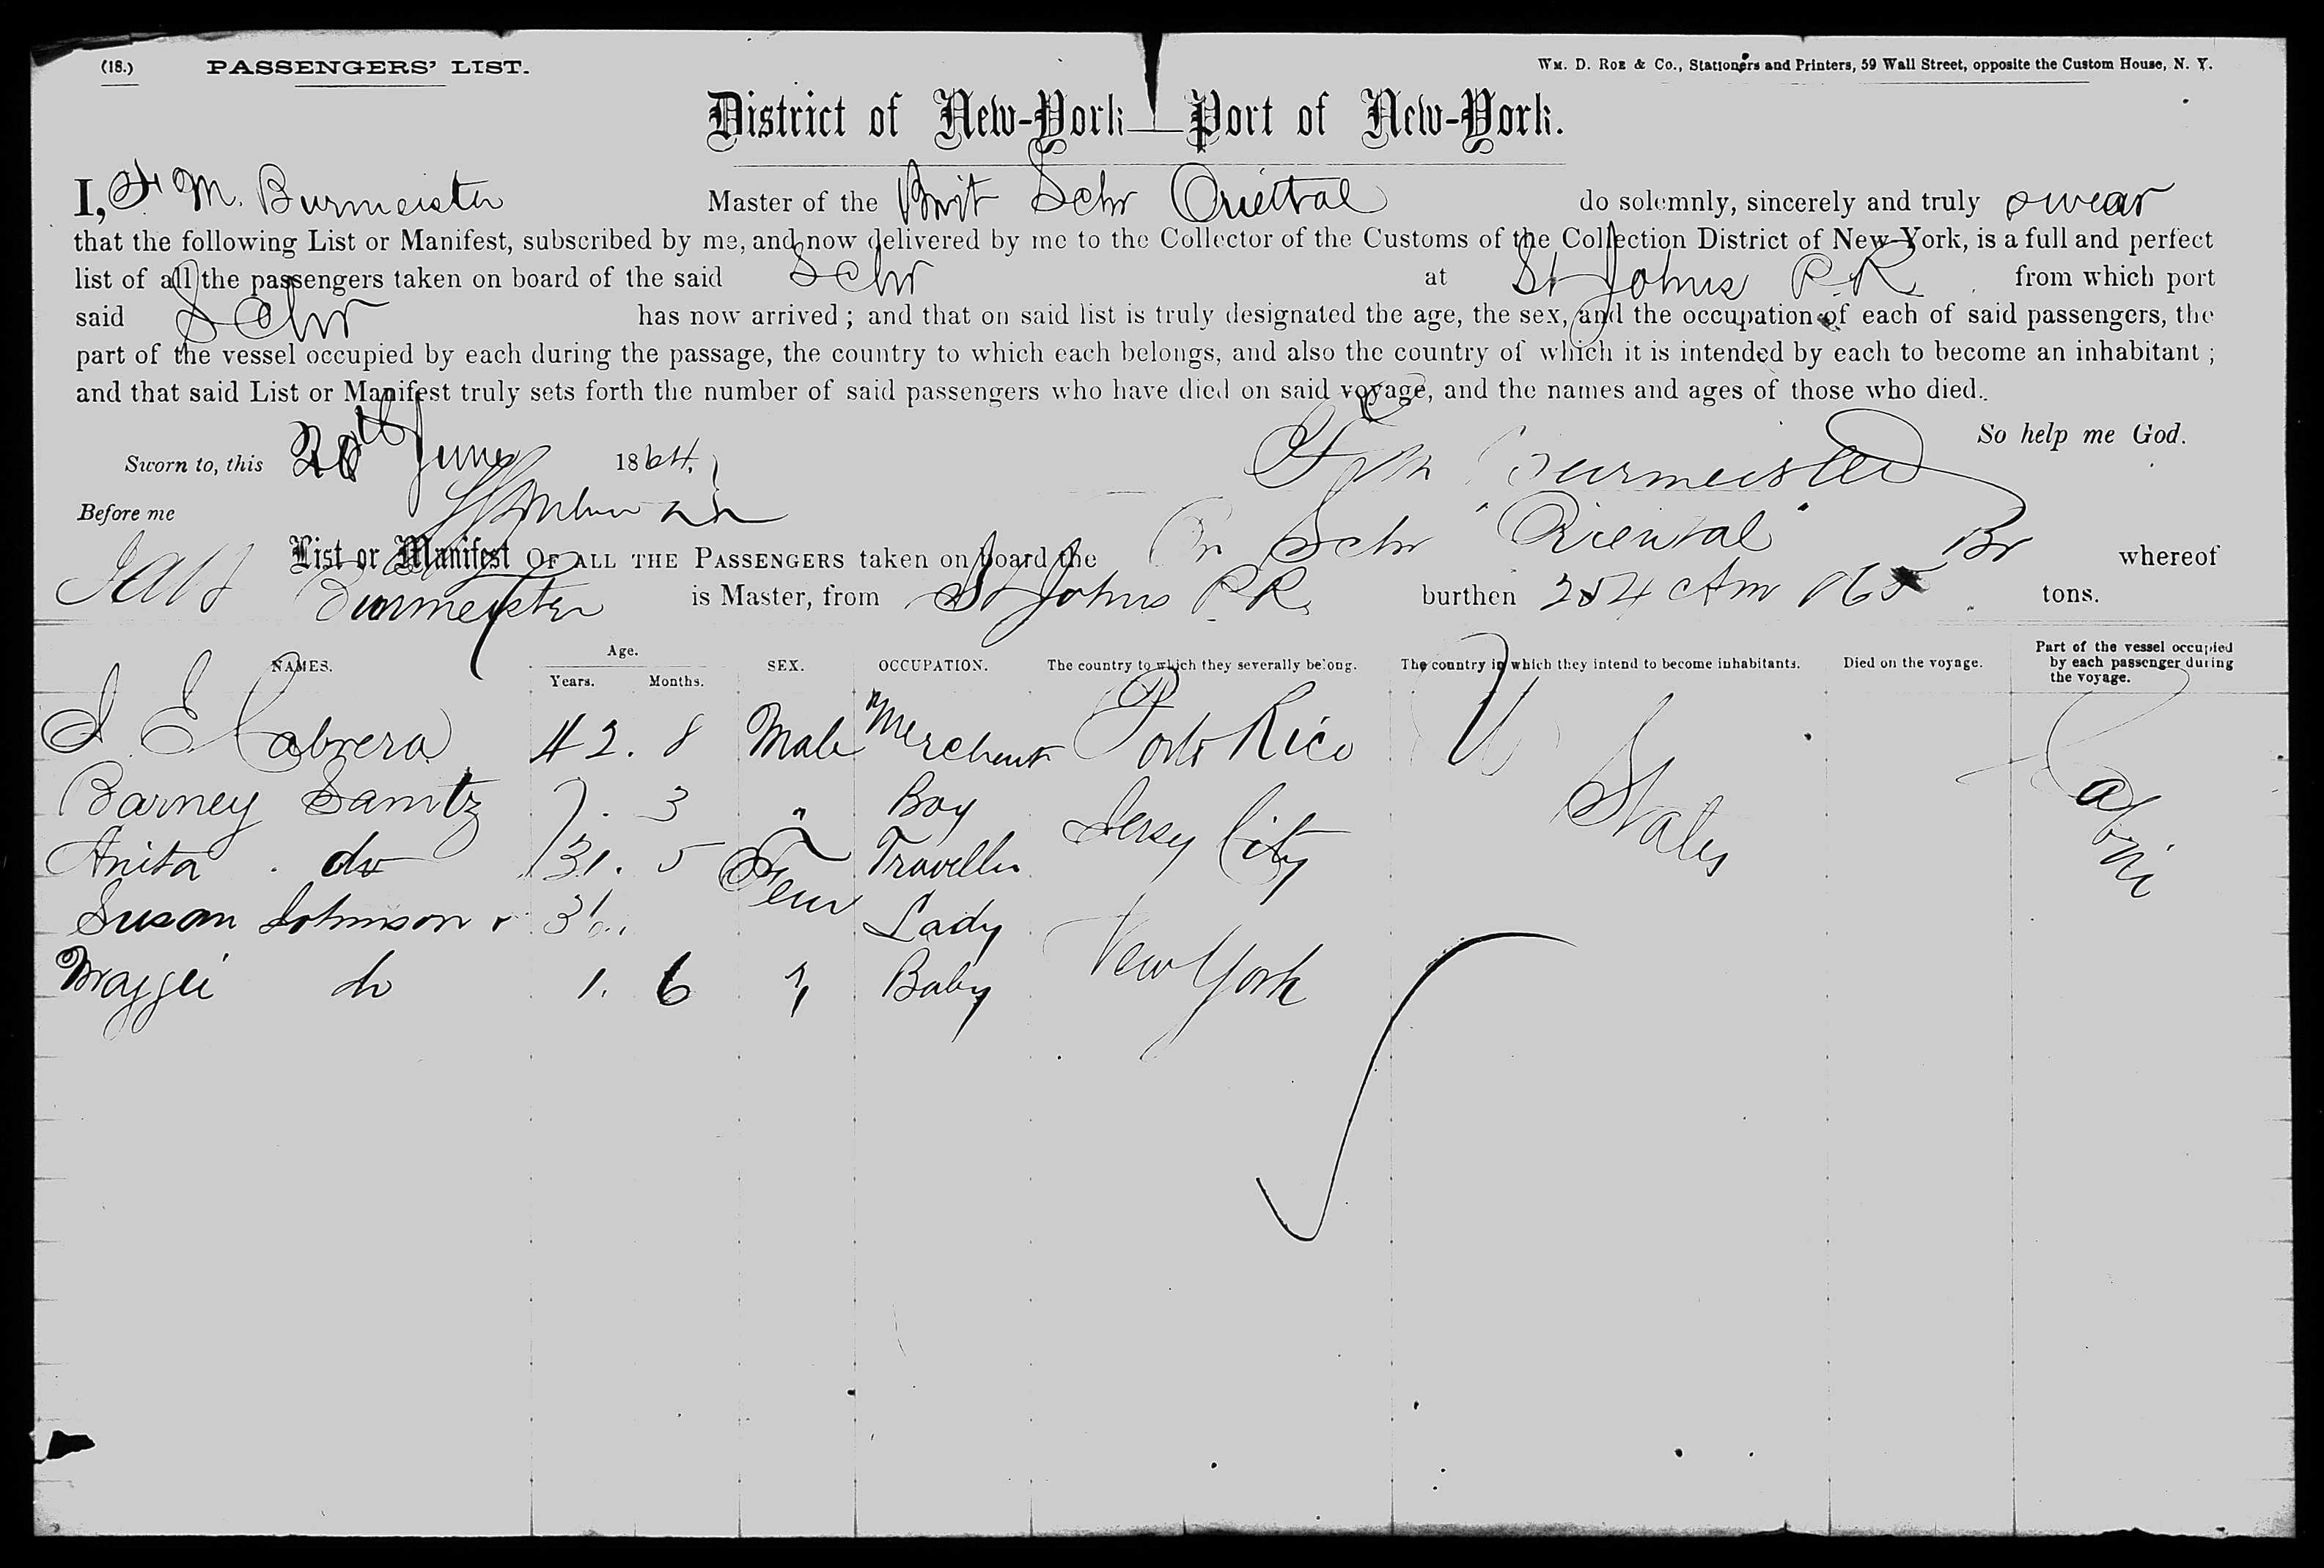 (18.) PASSENGERS' LIST. Wm. D. Roe & Co., Stationers and Printers, 59 Wall Street, opposite the Custom House, N. Y.
District of New-York—Port of New-York.
I, F M. Burmeister Master of the Brit Schr Oriental do solemnly, sincerely and truly swear
that the following List or Manifest, subscribed by me, and now delivered by me to the Collector of the Customs of the Collection District of New-York, is a full and perfect
list of all the passengers taken on board of the said Schr at St Johns P.R. from which port
said Schr has now arrived; and that on said list is truly designated the age, the sex, and the occupation of each of said passengers, the
part of the vessel occupied by each during the passage, the country to which each belongs, and also the country of which it is intended by each to become an inhabitant;
and that said List or Manifest truly sets forth the number of said passengers who have died on said voyage, and the names and ages of those who died.
So help me God.
Sworn to, this June 1864. F M Burmeister
Before me
List or Manifest OF ALL THE PASSENGERS taken on board the Br Schr "Oriental" Br whereof
Burmeister is Master, from St Johns P.R. burthen 254 Am 165 tons.
NAMES. Age. Years. Months. SEX. OCCUPATION. The country to which they severally belong. The country in which they intend to become inhabitants. Died on the voyage. Part of the vessel occupied by each passenger during the voyage.
J. E Cabrera 42. 8 Male Merchant Porto Rico U States Cabin
Barney Samitz 7. 3 " Boy Jersy City
Anita do 31. 5 Fem Traveller
Susan Johnson Lady New York
Maggie do 1. 6 " Baby